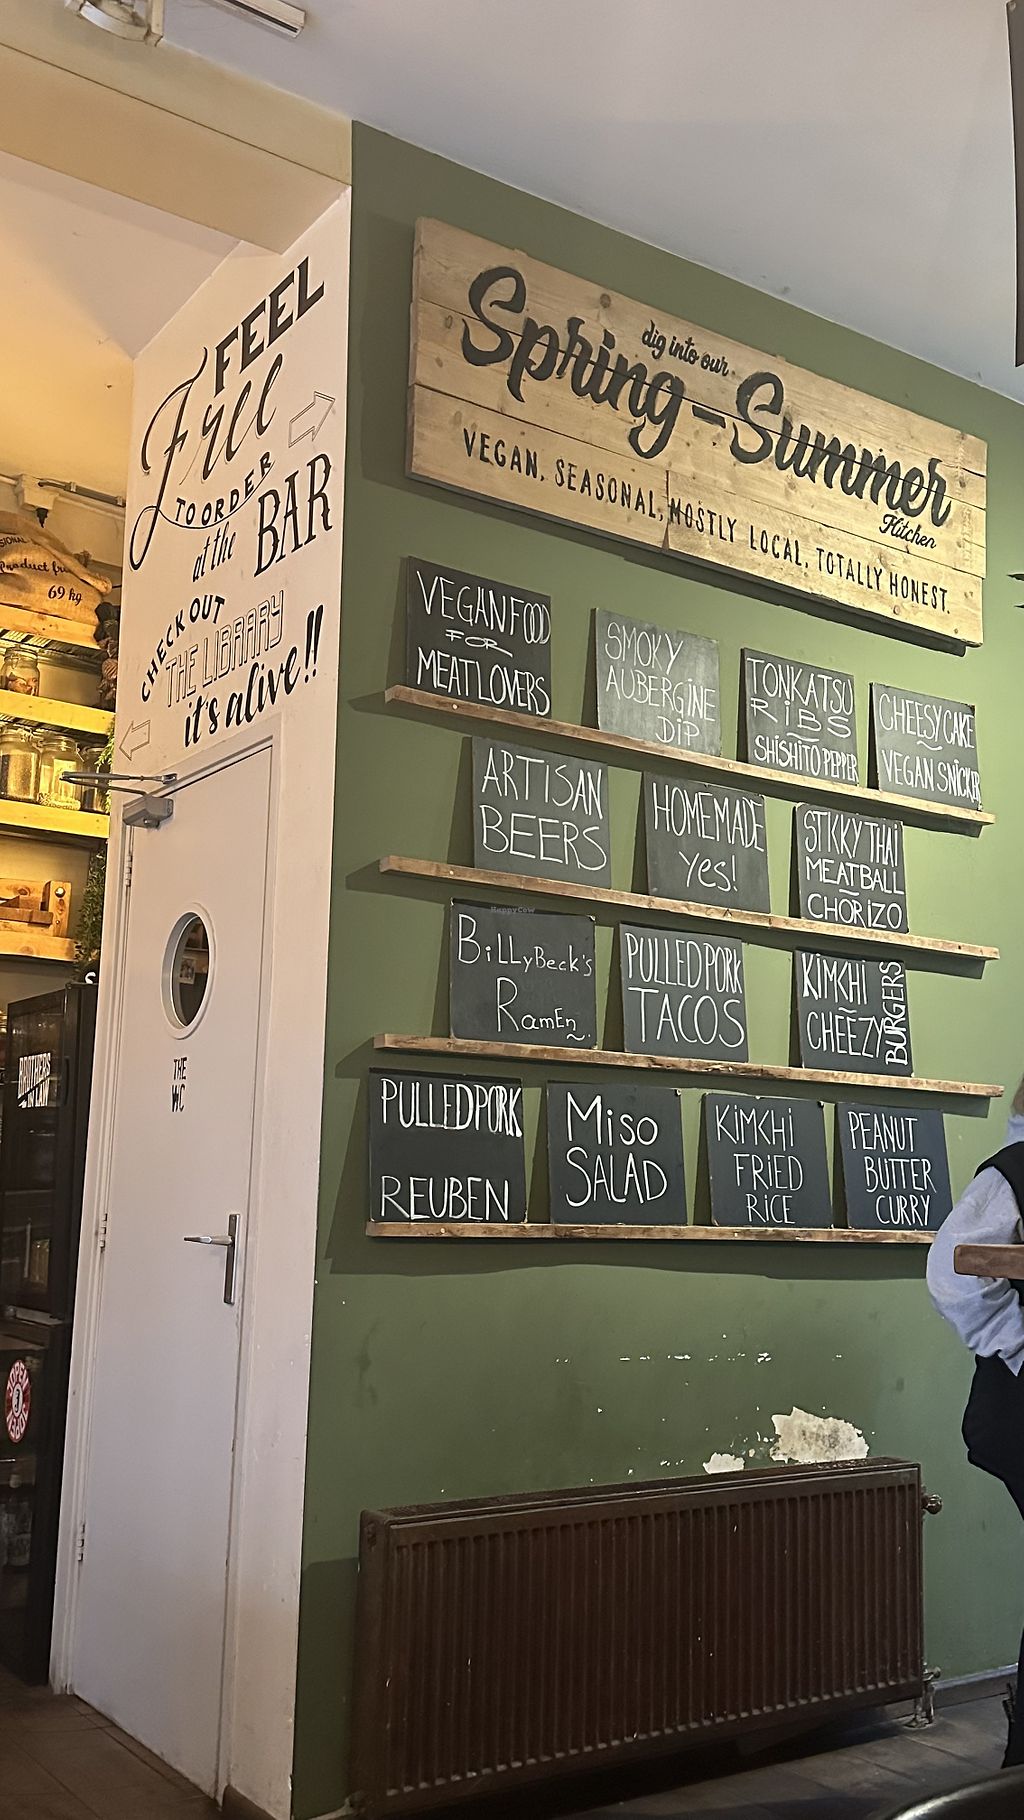 FEEL
Free
TO ORDER
at the
BAR
CHECK OUT
THE LIBRARY
it's alive!!
dig into our
Spring-Summer
Kitchen
VEGAN, SEASONAL, MOSTLY LOCAL, TOTALLY HONEST.
VEGAN FOOD
FOR
MEATLOVERS
SMOKY
AUBERGINE
DIP
TONKATSU
RiBS
SHISHITO PEPPER
CHEESY CAKE
VEGAN SNICKER
ARTISAN
BEERS
HOMEMADE
yes!
STICKY THAi
MEATBALL
CHORIZO
HappyCow
BiLLyBeck's
RamEn
PULLED PORK
TACOS
KiMCHi
CHEEZY
BURGERS
PULLED PORK
REUBEN
MiSO
SALAD
KiMCHi
FRiED
RiCE
PEANUT
BUTTER
CURRY
THE
WC
69 kg
BROTHERS
IN LAW